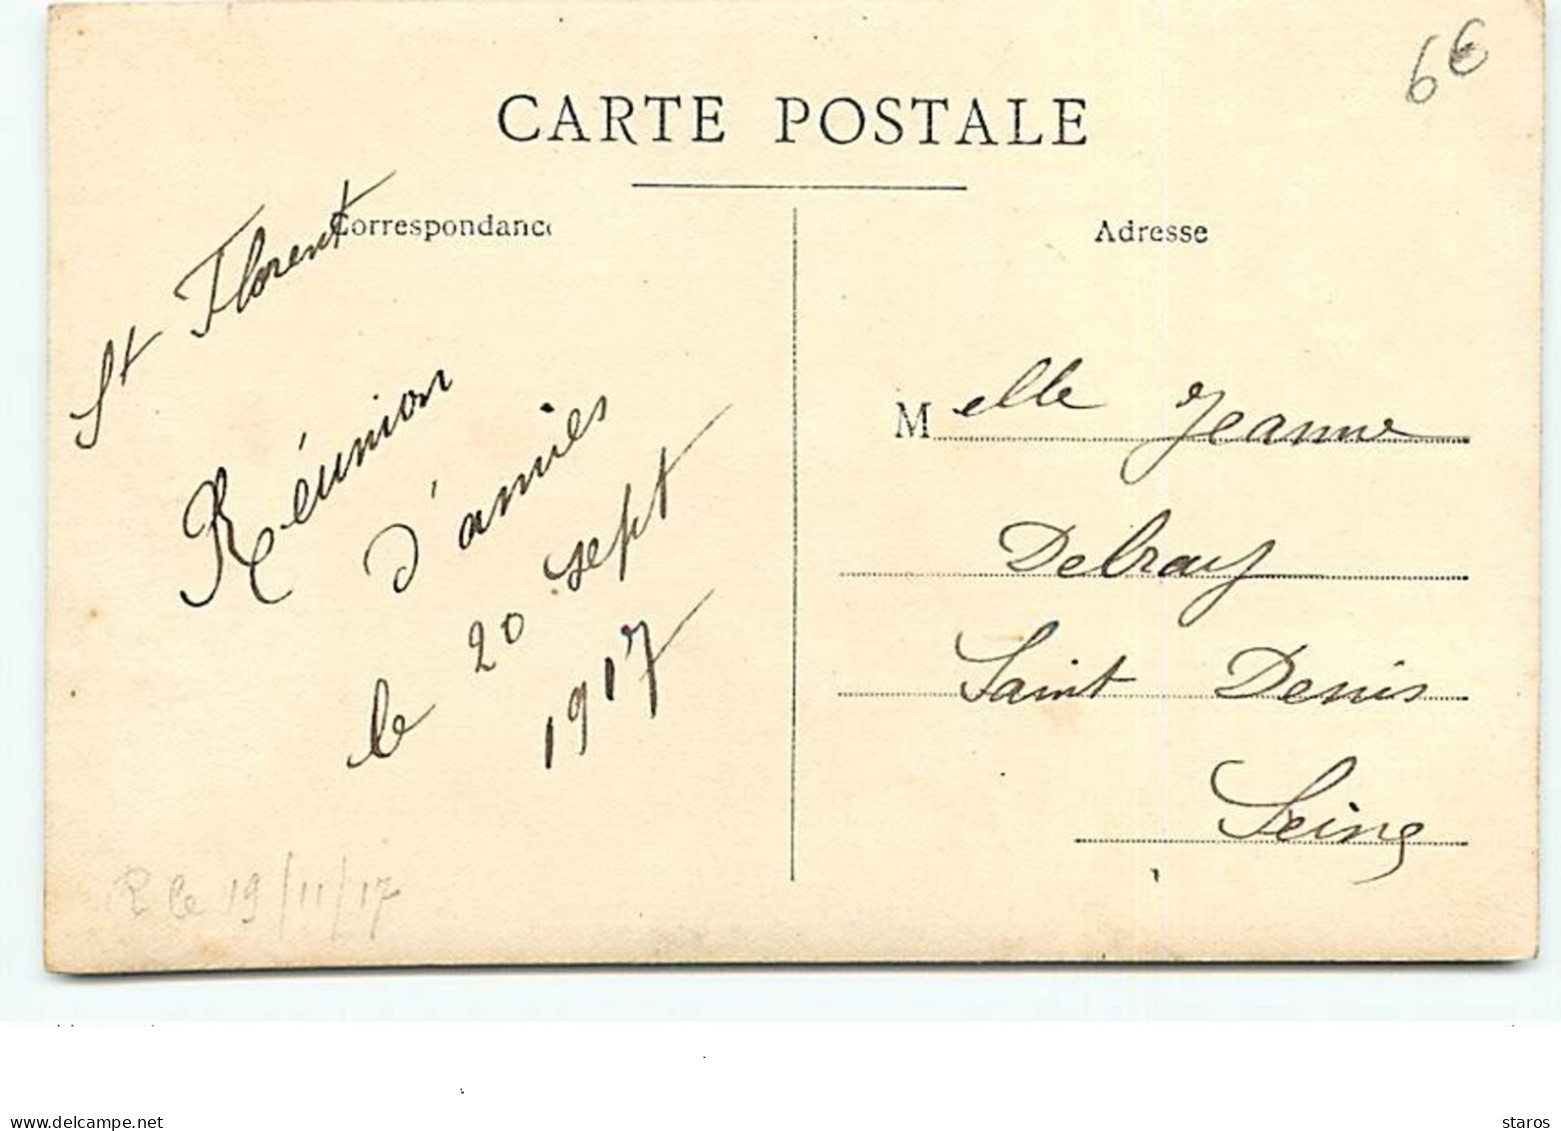 6€
CARTE POSTALE
Correspondance
Adresse
St Florent
Réunion
d'amies
le 20 sept
1917
Melle Jeanne
Delray
Saint Denis
Seine
R le 19/11/17
www.delcampe.net
staros